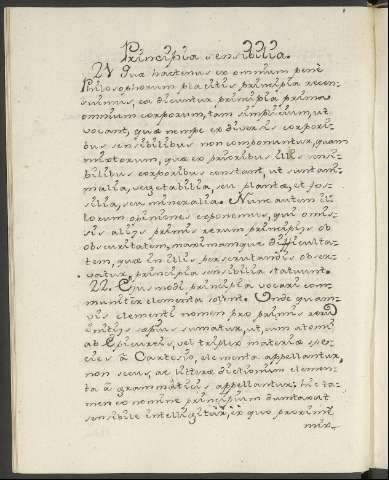 Principia sensibilia.
21 Quæ hactenus ex omnium penè
Philosophorum placitis principia recen-
suimus, ea dicuntur principia prima
omnium corporum, tam simplicium, ut
vocant, quæ nempe ex diversis corpori-
bus sensibilibus non componuntur, quam
mixtorum, quæ ex prioribus illis sensi-
bilibus corporibus constant, ut sunt ani-
malia, vegetabilia, seu plantæ, et fos-
silia, seu mineralia. Nunc autem il-
lorum opiniones exponemus, qui omis-
sis aliis primis rerum principijs ob
obscuritatem, maximamque difficulta-
tem, quæ in illis perscrutandis obser-
vatur, principia sensibilia statuunt.
22. Ejusmodi principia vocari com-
muniter elementa solent. Unde quam-
vis elementi nomen pro primis rerũ
initijs sæpius sumatur, ut, cum atomi
ab Epicureis, vel triplex materiæ spe-
cies à Cartesio, elementa appellantur,
non secus, ac litteræ dictionum elemen-
ta à grammaticis appellantur: hic ta-
men eo nomine principium dumtaxat
sensibile intelligitur, ex quo proximè
mix-